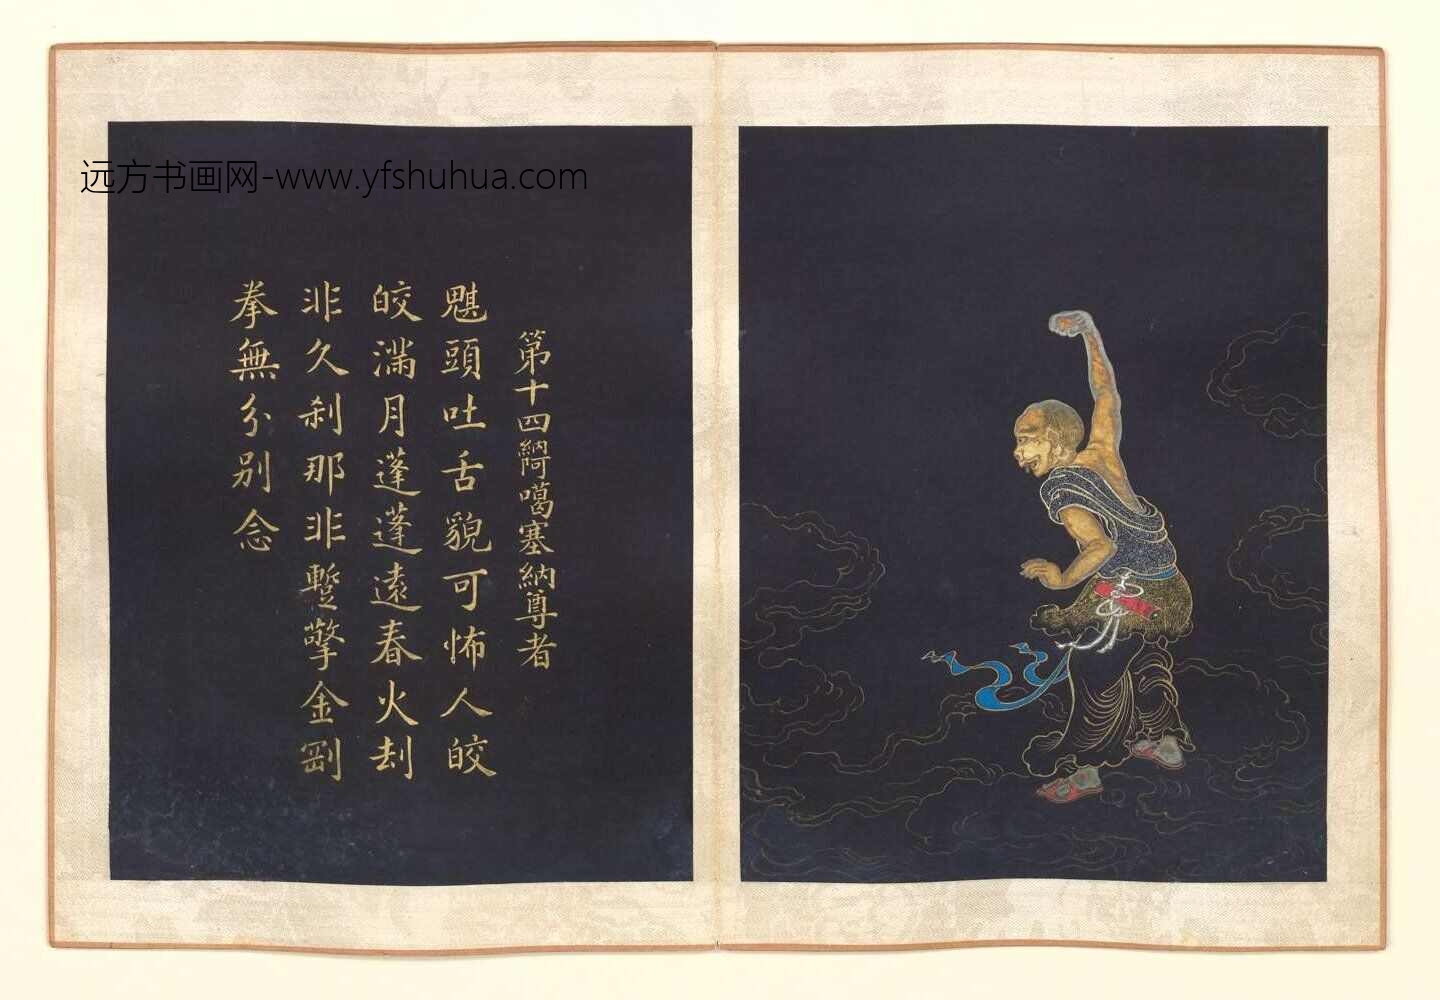 远方书画网-www.yfshuhua.com
第十四納阿噶塞納尊者
魌頭吐舌貌可怖人皎
皎滿月蓬蓬遠春火刦
非久刹那非蹔擎金剛
拳無分別念